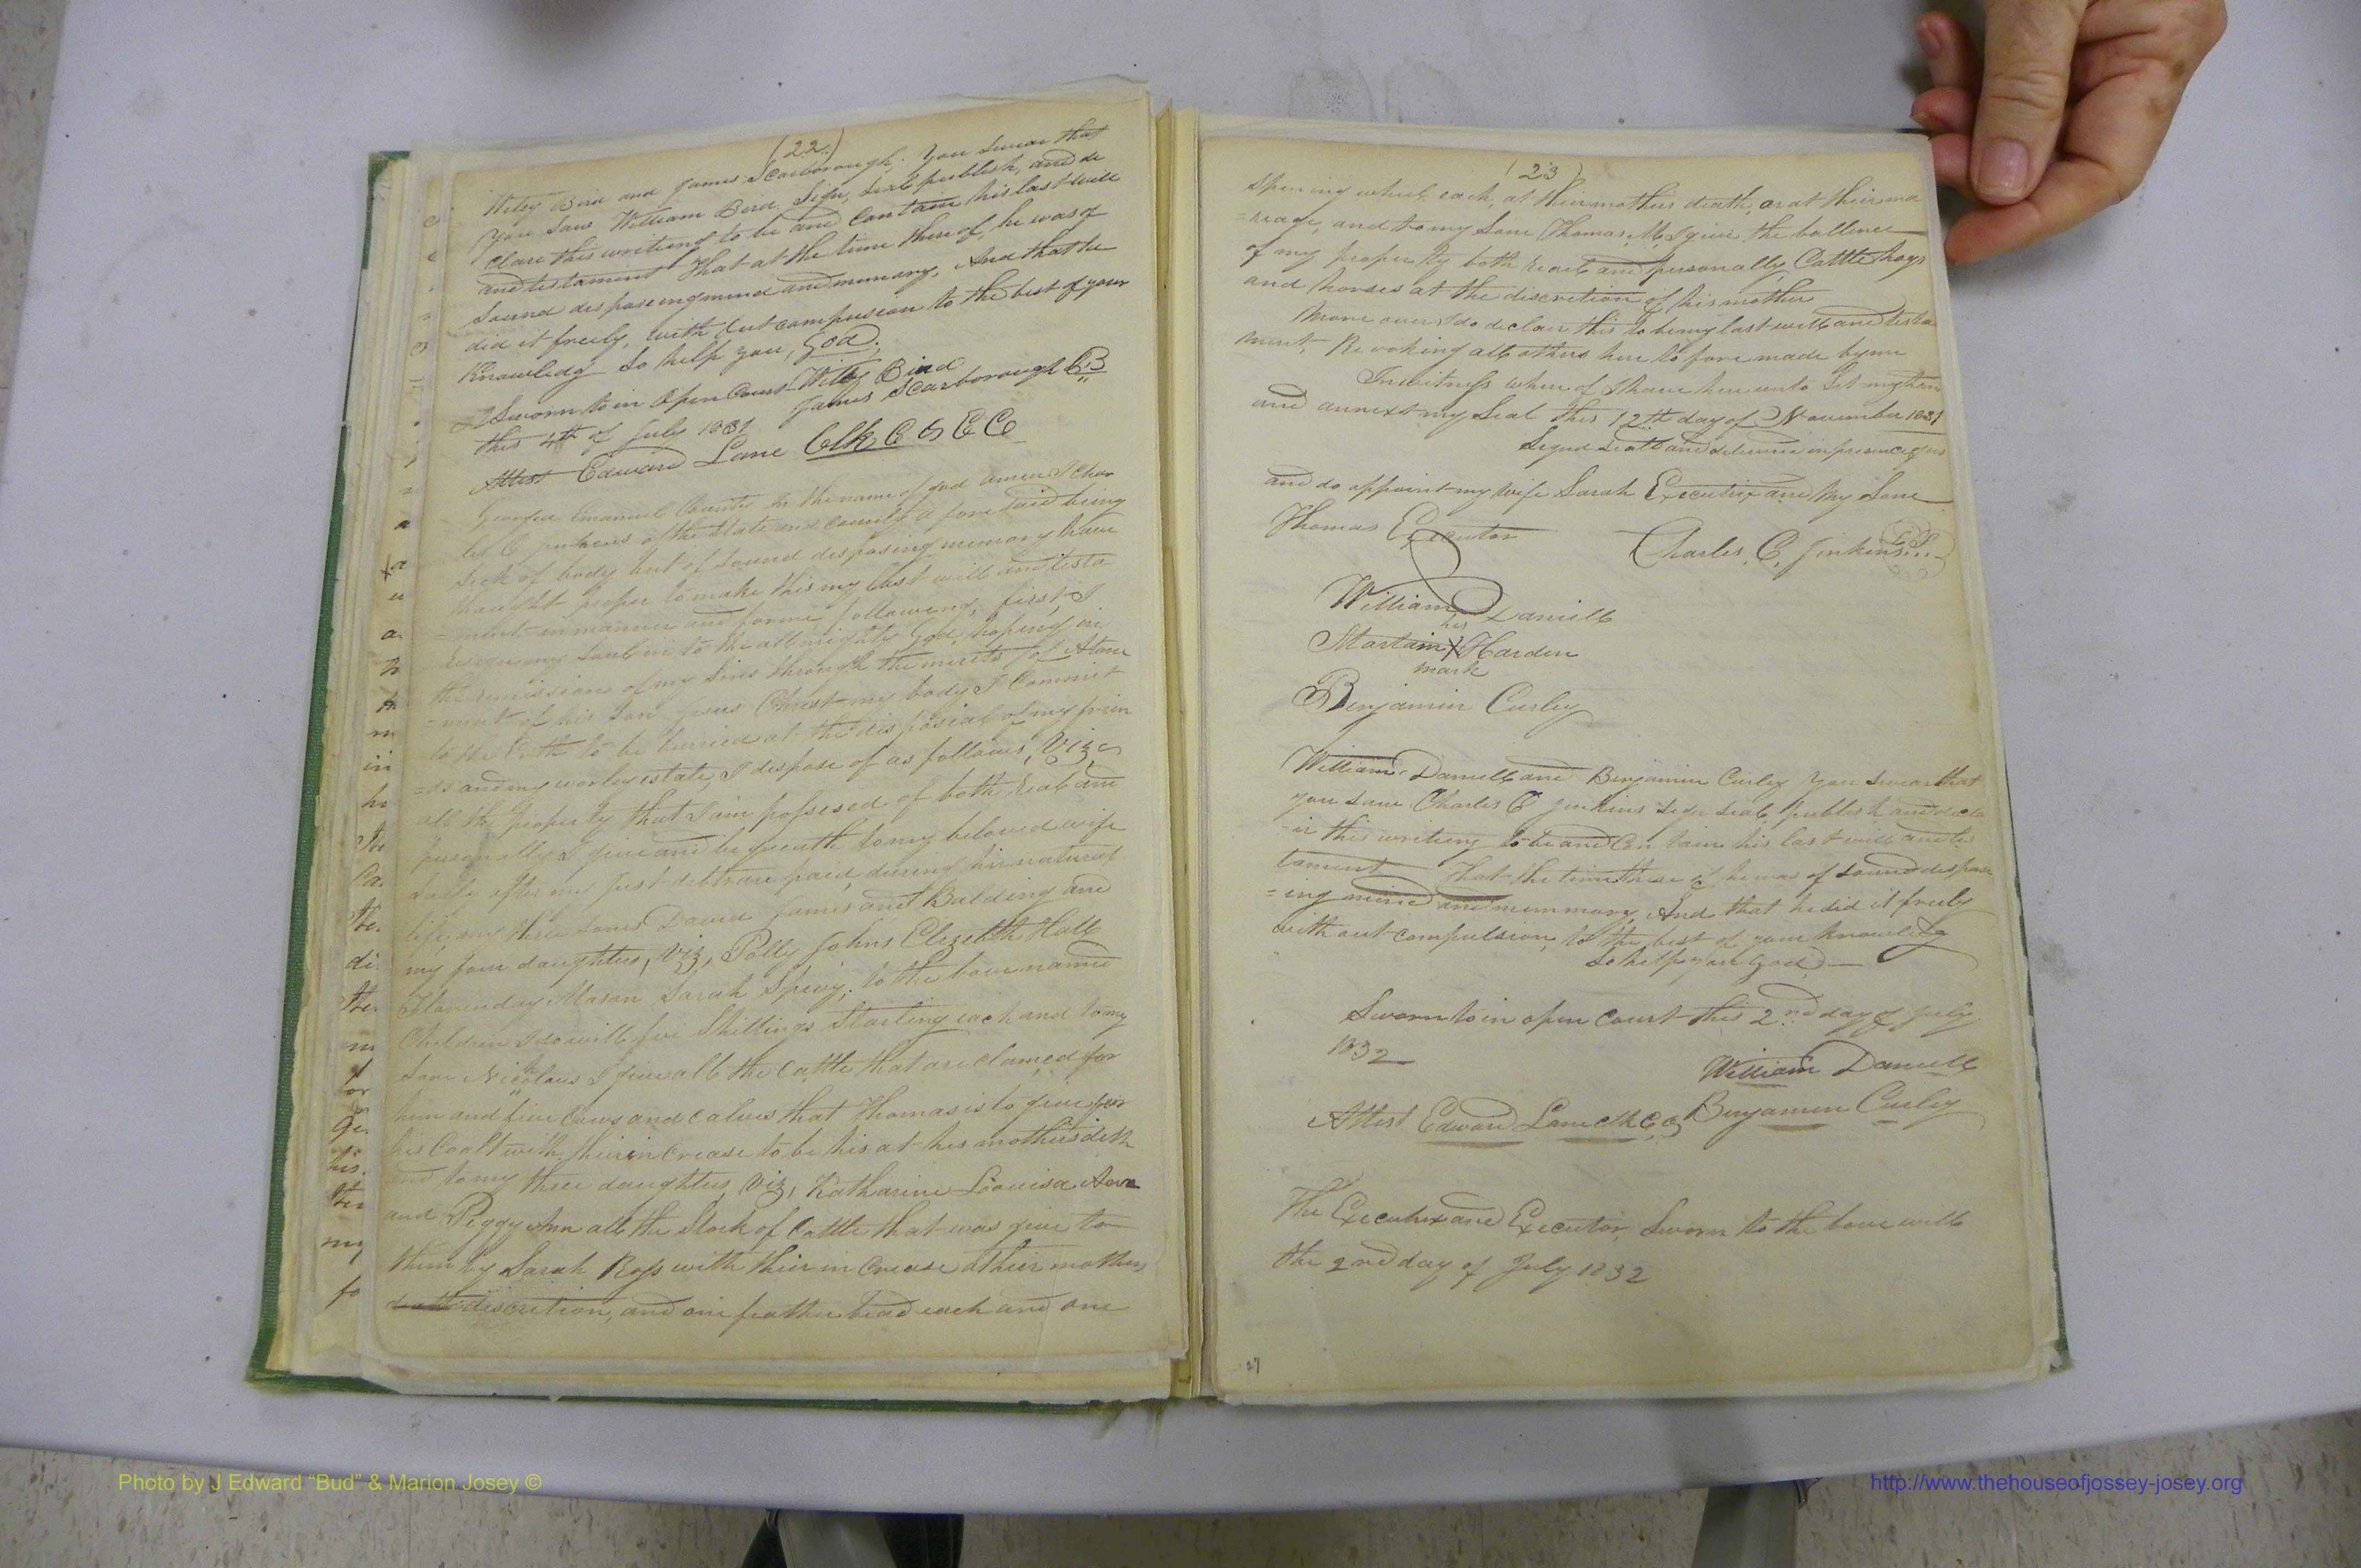 (22)
Wiley Bird and James Scarborough, You Swear that
you Saw William Bird Sign, Seal publish, and de
clare this writeing to be and Contain his last will
and testament That at the time there of, he was of
Sound disposeing mind and memory, And that he
did it freely, with out compusion to the best of your
Knowledg So help you, God.
Sworn to in Open Court Wiley Bird
this 4th of July 1831 James Scarborough
Attest Edward Lane Clk C O E C
Georgia Emanuel County In the name of god amen I Char
les C Jenkens of the State and County a fore Said being
Sick of body but of Sound disposing memory have
thought proper to make this my last will and testa
=ment in manner and forme followend, first, I
my Soul in to the allmighty God, hopeing in
the remissions of my Sins through the merits of Atone
=ment of his Son Jesus Christ my body I Commit
to the Erth to be burried at the disposial of my frien
=ds and my worley estate, I dispose of as follows, Viz
all the property that I am possesed of both real and
personally I give and bequeath to my beloved wife
Sally after my just debts are paid, during hir natural
life, my three Sons David James and Balding and
my four daughters, Viz, Polly Johns Elizebth Hall
Mason Sarah Spivy, to the bove named
Children I do will five Shillings Starling each and to my
Sone Nicolaus I give all the Cattle that are clamed for
him and five Cows and calves that Thomas is to give for
his Coalt with their in Crease to be his at his mothers deth
and to my three daughters, Viz, Katharine Louisa
and Peggy Ann all the Stock of Cattle that was give to
them by Sarah Ross with their in Crease at their mothers
discretion, and one feather bead each and one
(23)
Spining wheel each, at their mothers death, or at their ma
=riage, and to my Sone Thomas, M, I give the ballence
of my property both real and personally, Cattle hogs
and horses at the discretion of his mother
More over I do declair this to be my last will and testa
ment, Revoking all others here to fore made by me
In witness where of I have here unto Set my han
and annext my Seal this 12th day of November 1831
Signd Seald and deleverd in presence of us
and do appoint my wife Sarah Executrix and My Sone
Thomas Executor
Charles, C, Jinkins L.S.
William Daniell
his
Martain X Harden
mark
Benjamin Curley
William Daniell and Benjamin Curley You Swear that
you Saw Charles C Jenkins Sign Seal, publish and decla
ir this writeing to be and Con tain his last will and tes
tament That the time there of he was of Sound dispose
=ing mind and memmory, And that he did it freely
with out compulsion, to the best of your knowledg
So help you God
Sworn to in open Court this 2nd day of July
1832
William Daniell
Attest Edward Lane clk C O Benjamin Curley
The Executrix and Executor, Sworn to the bove will
the 2nd day of July 1832
27
Photo by J Edward “Bud” & Marion Josey ©
http://www.thehouseofjossey-josey.org